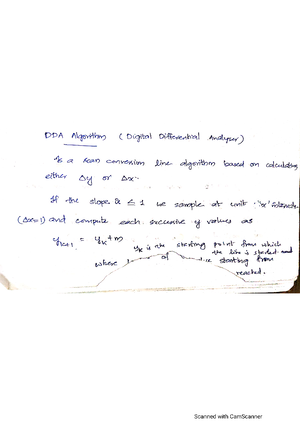 DDA Algorithm (Digital Differential Analyser)
Is a scan conversion line algorithm based on calculating
either Δy or Δx.
If the slope is ≤ 1 we sample at unit 'x' intervals
(Δx=1) and compute each successive y values as
yk+1 = yk + m
yk is the starting point from which
the line is started and
where of the starting from
reached.
Scanned with CamScanner